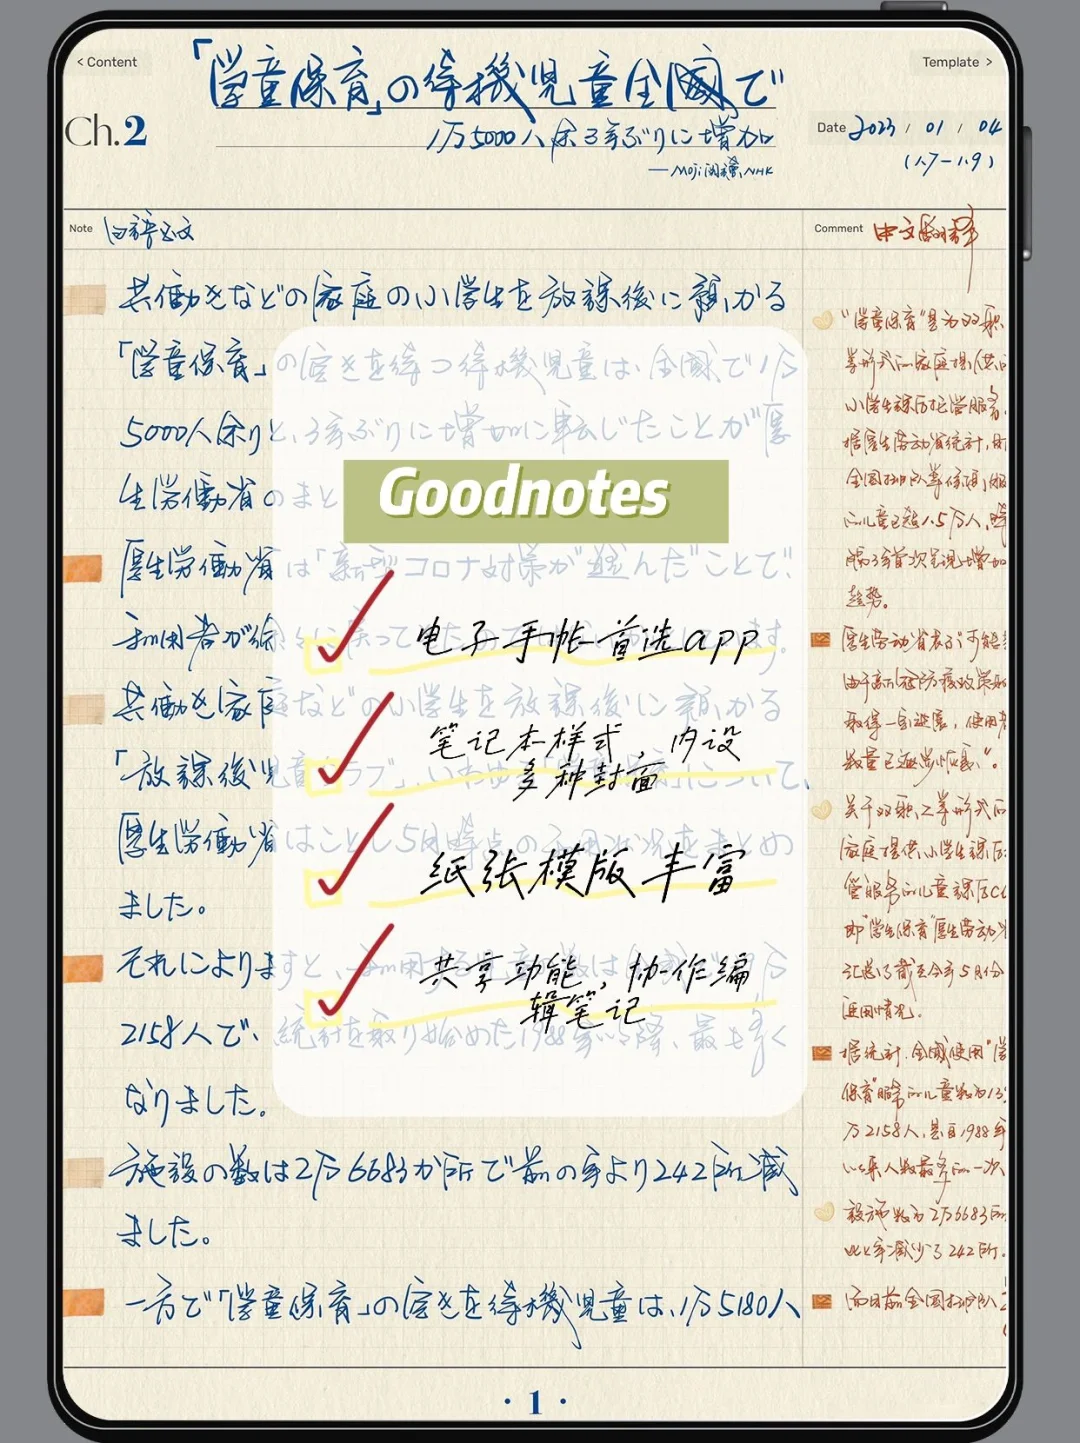 < Content
Template >
「学童保育」の待機児童全国で
Ch.2
1万5000人余 3年ぶりに増加
Date 2023 / 01 / 04
(1.7-1.9)
— Moji閲読、NHK
Note 日語原文
Comment 中文翻译
共働きなどの家庭の小学生を放課後に預かる
「学童保育」の空きを待つ待機児童は、全国で1万
5000人余りと、3年ぶりに増加に転じたことが厚
生労働省のまと
Goodnotes
厚生労働省は「新型コロナ対策が進んだことで、
利用者が徐々に戻ってきた
电子手帐首选app
共働き家庭などの小学生を放課後に預かる
笔记本样式，内设
多种封面
「放課後児童クラブ」、いわゆる
について、
厚生労働省はことし5月時点の利用状況をまとめ
ました。
纸张模版丰富
それによりますと、利用する児童は
共享功能，协作编
辑笔记
2158人で、統計を取り始めた1988年以降、最も多く
なりました。
施設の数は2万6683か所で前の年より242か所減
ました。
一方で「学童保育」の空きを待機児童は、1万5180人
“学童保育”是为双职
等形式的家庭提供的
小学生课后托管服务，
据厚生劳动省统计，
全国排队等候
的儿童已超1.5万人，
隔3年首次呈现增加
趋势。
厚生劳动省表示
由于新冠防疫政策
取得一定进展，使用者
数量已逐渐恢复”。
关于双职工等形式的
家庭提供小学生课后
管服务的儿童课后
即“学童保育”厚生劳动省
汇总了截至今年5月份
使用情况。
据统计，全国使用“学
保育”服务的儿童数为13
万2158人，是自1988年
以来人数最多的一次
设施数为2万6683所
比上年减少了242所.
而目前全国排队
· 1 ·